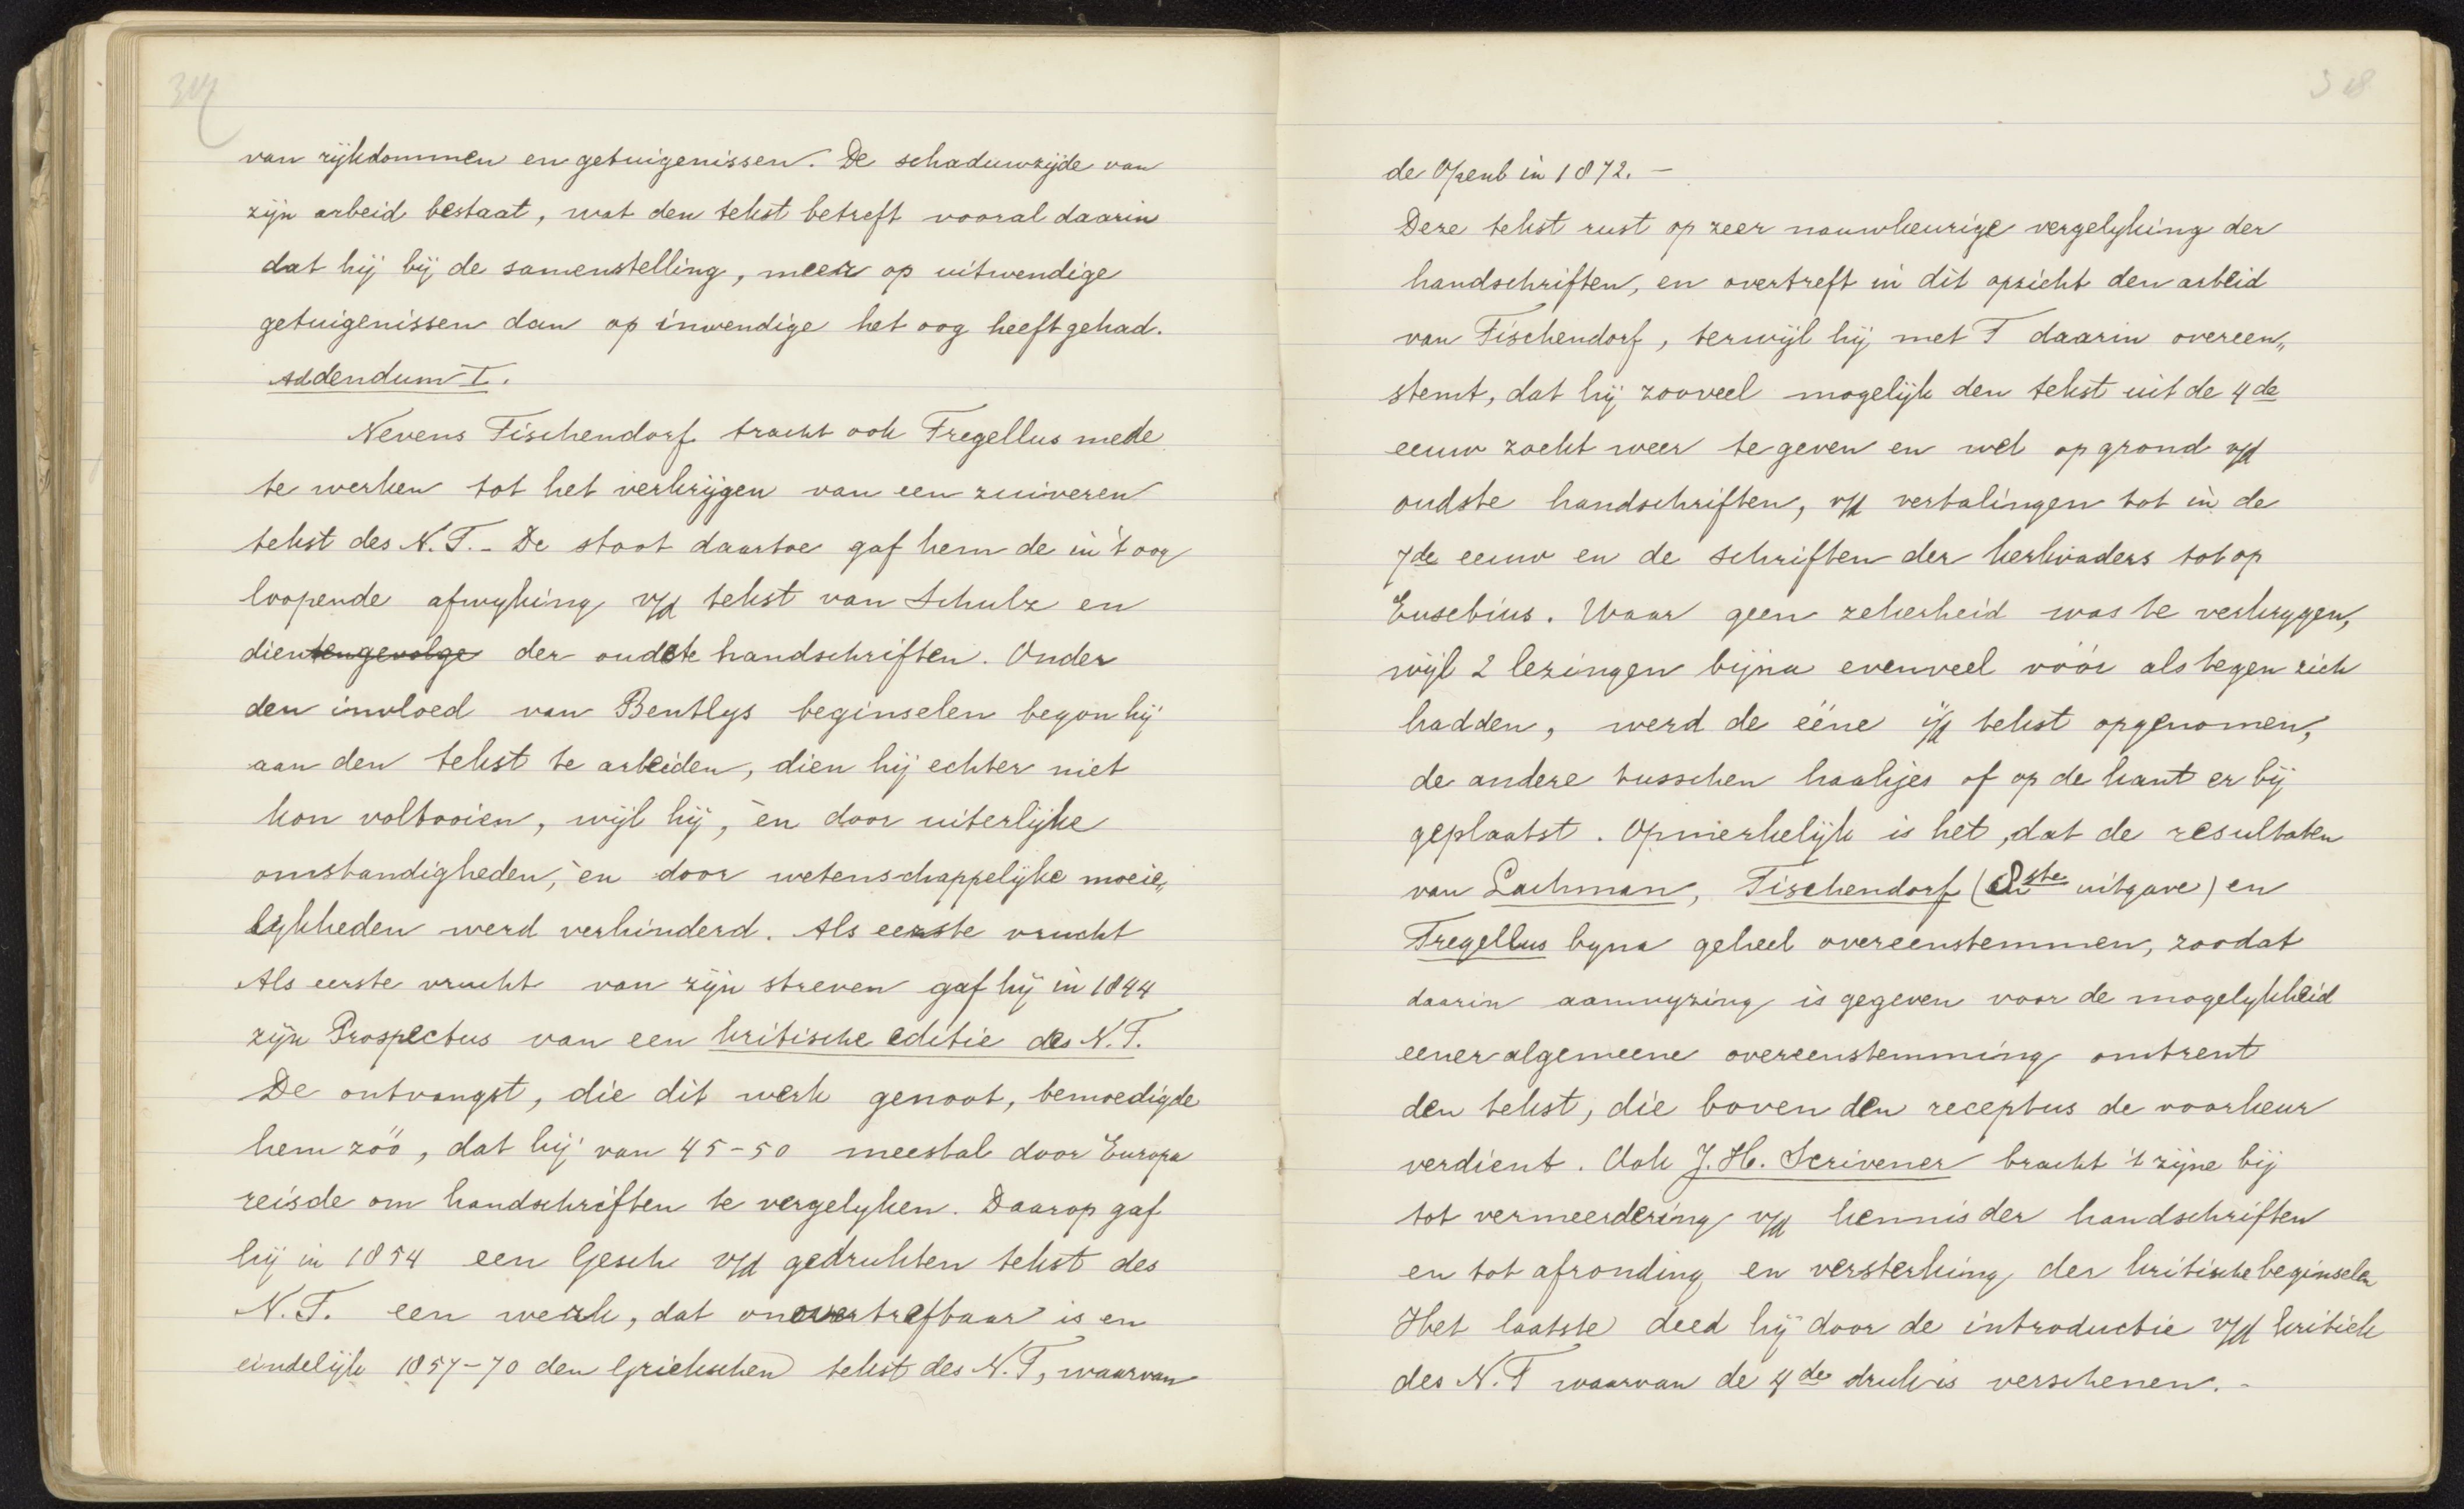 317
van rijkdommen en getuigenissen. De schaduwzijde van
zijn arbeid bestaat, wat den tekst betreft vooral daarin
dat hij bij de samenstelling, meer op uitwendige
getuigenissen dan op inwendige het oog heeft gehad.
Addendum I.
Nevens Tischendorf tracht ook Tregellus mede
te werken tot het verkrijgen van een zuiveren
tekst des N.T. - De stoot daartoe gaf hem de in 't oog
loopende afwyking v/d tekst van Schulz en
dientengevolge der oudste handschriften. Onder
den invloed van Bentlys beginselen begon hij
aan den tekst te arbeiden, dien hij echter niet
kon voltooien, wijl hij, èn door uiterlijke
omstandigheden, èn door wetenschappelijke moeie„
lykheden werd verhinderd. Als eerste vrucht
Als eerste vrucht van zijn streven gaf hij in 1844
zijn Prospectus van een kritische editie des N.T.
De ontvangst, die dit werk genoot, bemoedigde
hem zóó, dat hij van 45-50 meestal door Europa
reisde om handschriften te vergelyken. Daarop gaf
hij in 1854 een Gesch v/d gedrukten tekst des
N.T. een werk, dat onovertrefbaar is en
eindelijk 1857-70 den Griekschen tekst des N.T, waarvan
318
de Openb in 1872. -
Deze tekst rust op zeer nauwkeurige vergelyking der
handschriften, en overtreft in dit opzicht den arbeid
van Tischendorf, terwijl hij met T daarin overeen„
stemt, dat hij zooveel mogelijk den tekst uit de 4de
eeuw zoekt weer te geven en wel op grond v/d
oudste handschriften, v/d vertalingen tot in de
7de eeuw en de schriften der kerkvaders tot op
Eusebius. Waar geen zekerheid was te verkrygen,
wijl 2 lezingen bijna evenveel vóór als tegen zich
hadden, werd de ééne i/d tekst opgenomen,
de andere tusschen haakjes of op de kant er bij
geplaatst. Opmerkelijk is het, dat de resultaten
van Lachman, Tischendorf (8ste uitgave) en
Tregellus byna geheel overeenstemmen, zoodat
daarin aanwyzing is gegeven voor de mogelykheid
eener algemeene overeenstemming omtrent
den tekst, die boven den receptus de voorkeur
verdient. Ook J. H. Scrivener bracht 't zijne bij
tot vermeerdering v/d kennis der handschriften
en tot afronding en versterking der kritische beginselen
Het laatste deed hij door de introductie v/d kritiek
des N.T waarvan de 4de druk is verschenen. -